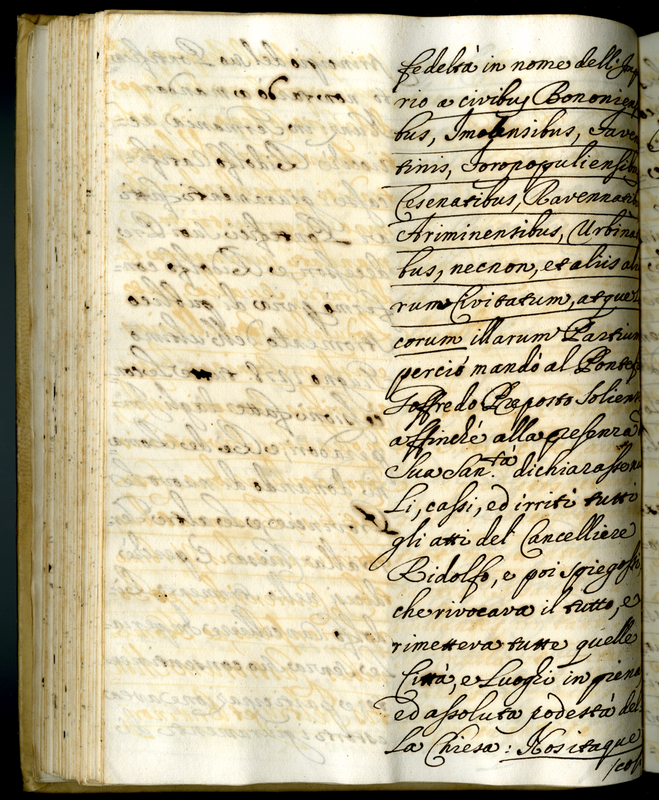 fedeltà in nome dell' Impe
rio a civibus Bononien
bus, Imolensibus, Faven
tinis, Foropopuliensibu
Cesenatibus, Ravennati
Ariminensibus, Urbina
bus, necnon, et aliis al
rum Civitatum, atque L
corum illarum Partium
perciò mandò al Pontef
Goffredo Preposto Solien
affinché alla presenza
Sua San.tà dichiarasse n
li, cassi, ed irriti tutti
gli atti del Cancelliere
Ridolfo, e poi spiegossi
che rivocava il tutto, e
rimetteva tutte quelle
Città, e Luoghi in piena
ed assoluta podestà del
la Chiesa: Nos itaque